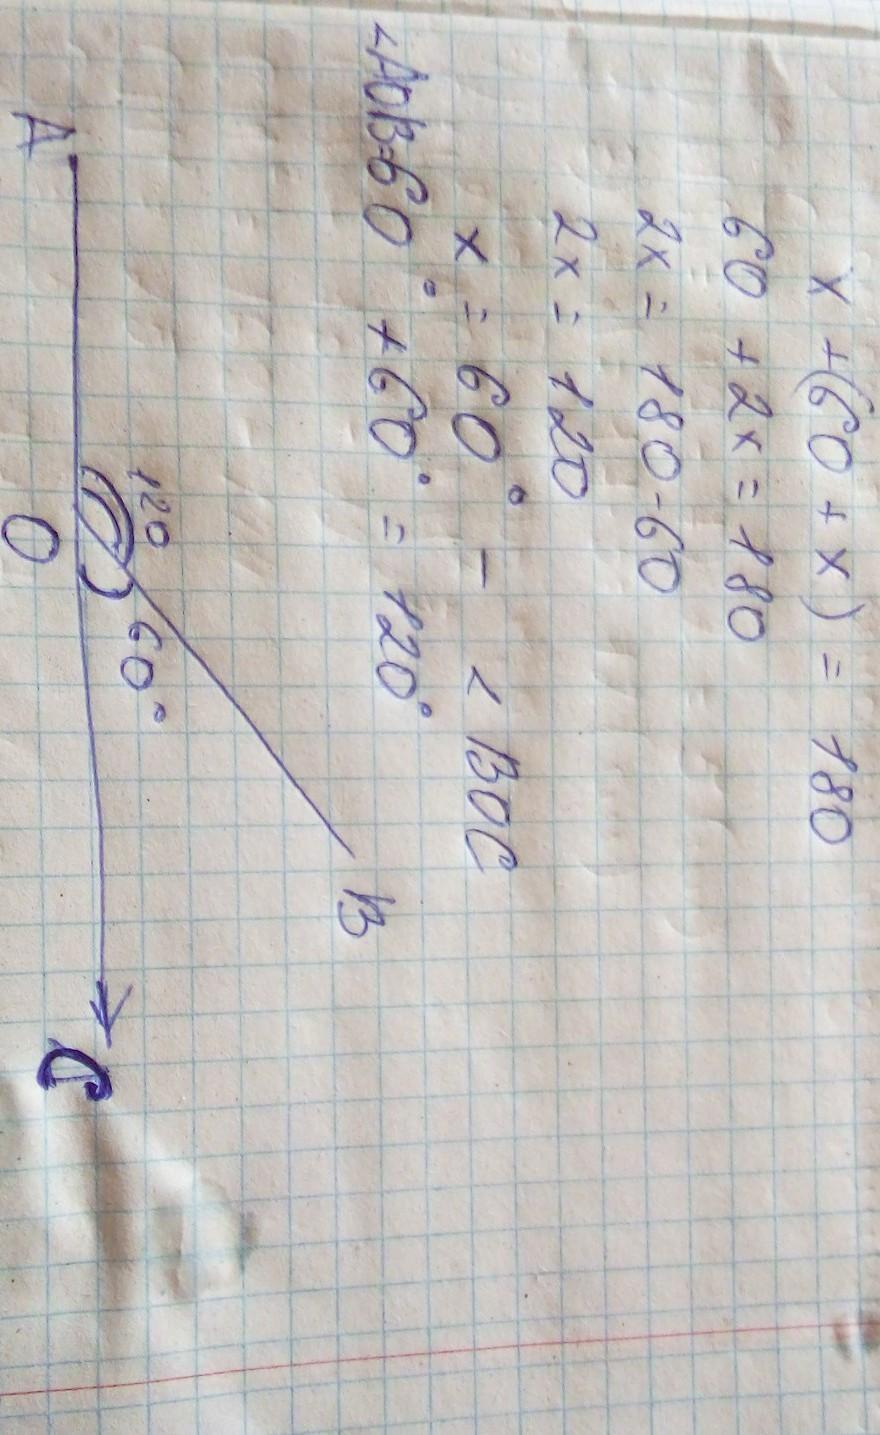 x + (60 + x) = 180
60 + 2x = 180
2x = 180 - 60
2x = 120
x = 60° - < BOC
<AOB=60° + 60° = 120°
B
120 60°
A O C